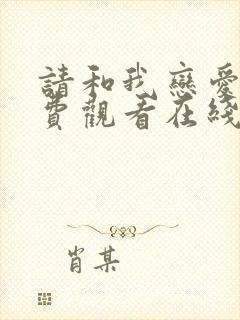 請和我戀愛
費觀看在綫
肖某